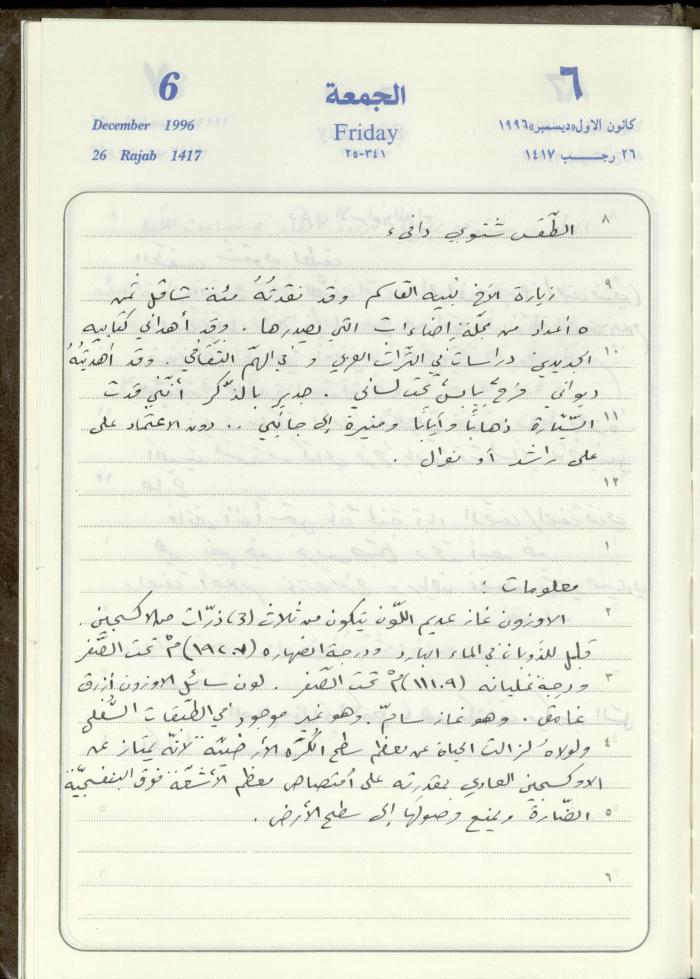 6
الجمعة
٦
December 1996
Friday
كانون الاول «ديسمبر» ١٩٩٦
26 Rajab 1417
٣٤١-٢٥
٢٦ رجب ١٤١٧
٨
الطّقس شتوي دافىء
٩
زيارة الأخ نبيه القاسم وقد نقدتُهُ مئة شاقل ثمن
٥ أعداد من مجلّة إضاءات التي يصدرها . وقد أهداني كتابيه
١٠
الجديدين دراسات في التّراث العربي و في الهمّ الثقافي . وقد أهديتُهُ
ديواني فرحٌ يابسٌ تحت لساني . جدير بالذّكر أنّني قدت
١١
السّيّارة ذهاباً وأياباً ومنيرة إلى جانبي .. دون الاعتماد على
على راشد أو نوال .
١٢
١
معلومات :
٢
الاوزون غاز عديم اللّون يتكون من ثلاث (3) ذرّات من الاكسجين
قليل للذوبان في الماء البارد ودرجة انصهاره (١٩٢.٧) مْ تحت الصّفر
٣
ودرجة غليانه (١١١.٩) مْ تحت الصّفر . لون سائل الاوزون أزرق
غامق . وهو غاز سامّ . وهو غير موجود في الطّبقات السُّفلى
٤
ولولاهُ لزالت الحياة عن معظم سطح الكُرة الارضيّة لأنّه يمتاز عن
الاوكسجين العادي بمقدرته على أمتصاص معظم الأشعّة فوق البنفسجيّة
٥
الضّارة ويمنع وصولها إلى سطح الأرض .
٦